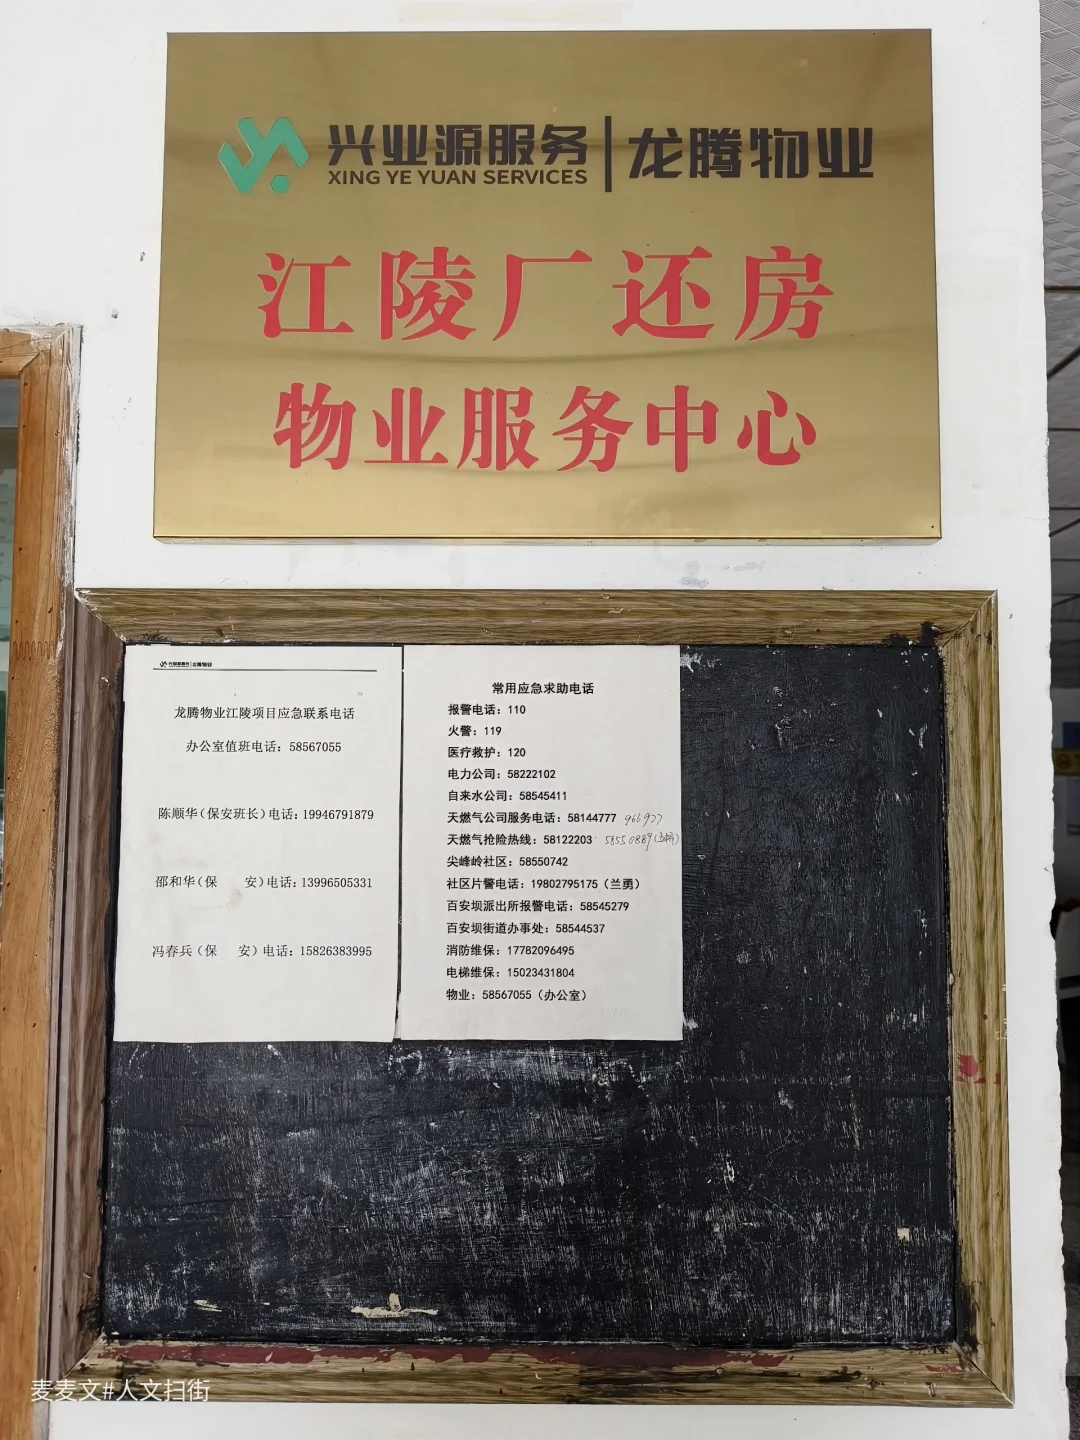 兴业源服务 龙腾物业
XING YE YUAN SERVICES
江陵厂还房
物业服务中心
兴业源服务 龙腾物业
龙腾物业江陵项目应急联系电话
办公室值班电话：58567055
陈顺华（保安班长）电话：19946791879
邵和华（保 安）电话：13996505331
冯春兵（保 安）电话：15826383995
常用应急求助电话
报警电话：110
火警：119
医疗救护：120
电力公司：58222102
自来水公司：58545411
天燃气公司服务电话：58144777 966977
天燃气抢险热线：58122203 58550889
尖峰岭社区：58550742
社区片警电话：19802795175（兰勇）
百安坝派出所报警电话：58545279
百安坝街道办事处：58544537
消防维保：17782096495
电梯维保：15023431804
物业：58567055（办公室）
麦麦文#人文扫街